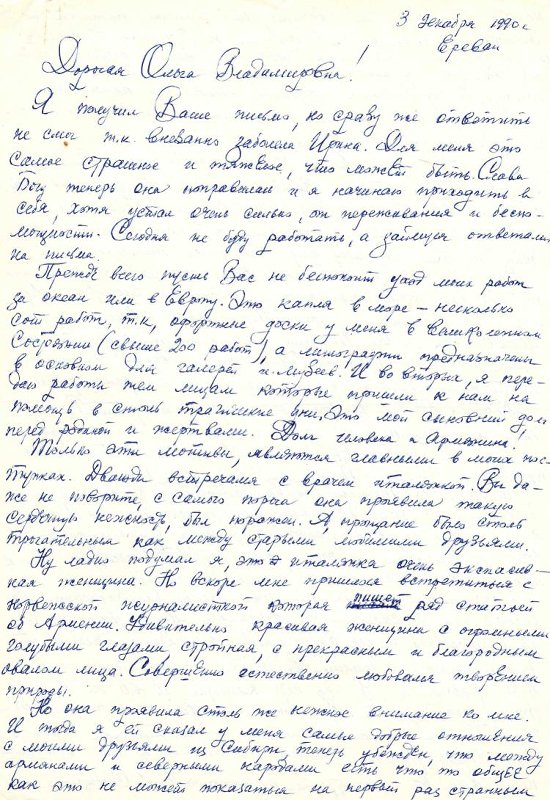 3 декабря 1990 г
Ереван
Дорогая Ольга Владимировна!
Я получил Ваше письмо, но сразу же ответить
не смог т.к. внезапно заболела Ирина. Для меня это
самое страшное и тяжелое, что может быть. Слава
Богу теперь она поправилась и я начинаю приходить в
себя, хотя устал очень сильно, от переживания и беспо-
мощности. Сегодня не буду работать, а займусь ответами
на письма.
Прежде всего пусть Вас не беспокоит уход моих работ
за океан или в Европу. Это капля в море – несколько
сот работ, т.к. офортные доски у меня в великолепном
Состоянии (свыше 200 работ), а линогравюры предназначены
в основном для галерей и музеев. И во вторых, я пере-
даю работы тем лицам которые пришли к нам на
помощь в столь трагические дни. Это мой сыновний долг
перед родиной и жертвами. Долг человека и Армянина.
Только эти мотивы, являются главными в моих пос-
тупках. Дважды встречался с врачем италянкой. Вы да-
же не поверите, с самого порога она проявила такую
сердечную нежность, был поражен. А, прощание было столь
трогательным как между старыми любимыми друзьями.
Ну ладно подумал я, это италянка очень экспансив-
ная женщина. Но вскоре мне пришлось встретиться с
норвежской журналисткой которая пишет ряд статьей
об Армении. Удивительно красивая женщина с огромными
голубыми глазами стройная, с прекрасным и благородным
овалом лица. Совершенно естественно любовался творением
природы.
Но она проявила столь же нежное внимание ко мне.
И тогда я ей сказал у меня самые добрые отношения
с моими друзьями из Сибири, теперь убежден, что между
армянами и северными народами есть что то общее
как это не может показаться на первый раз странным